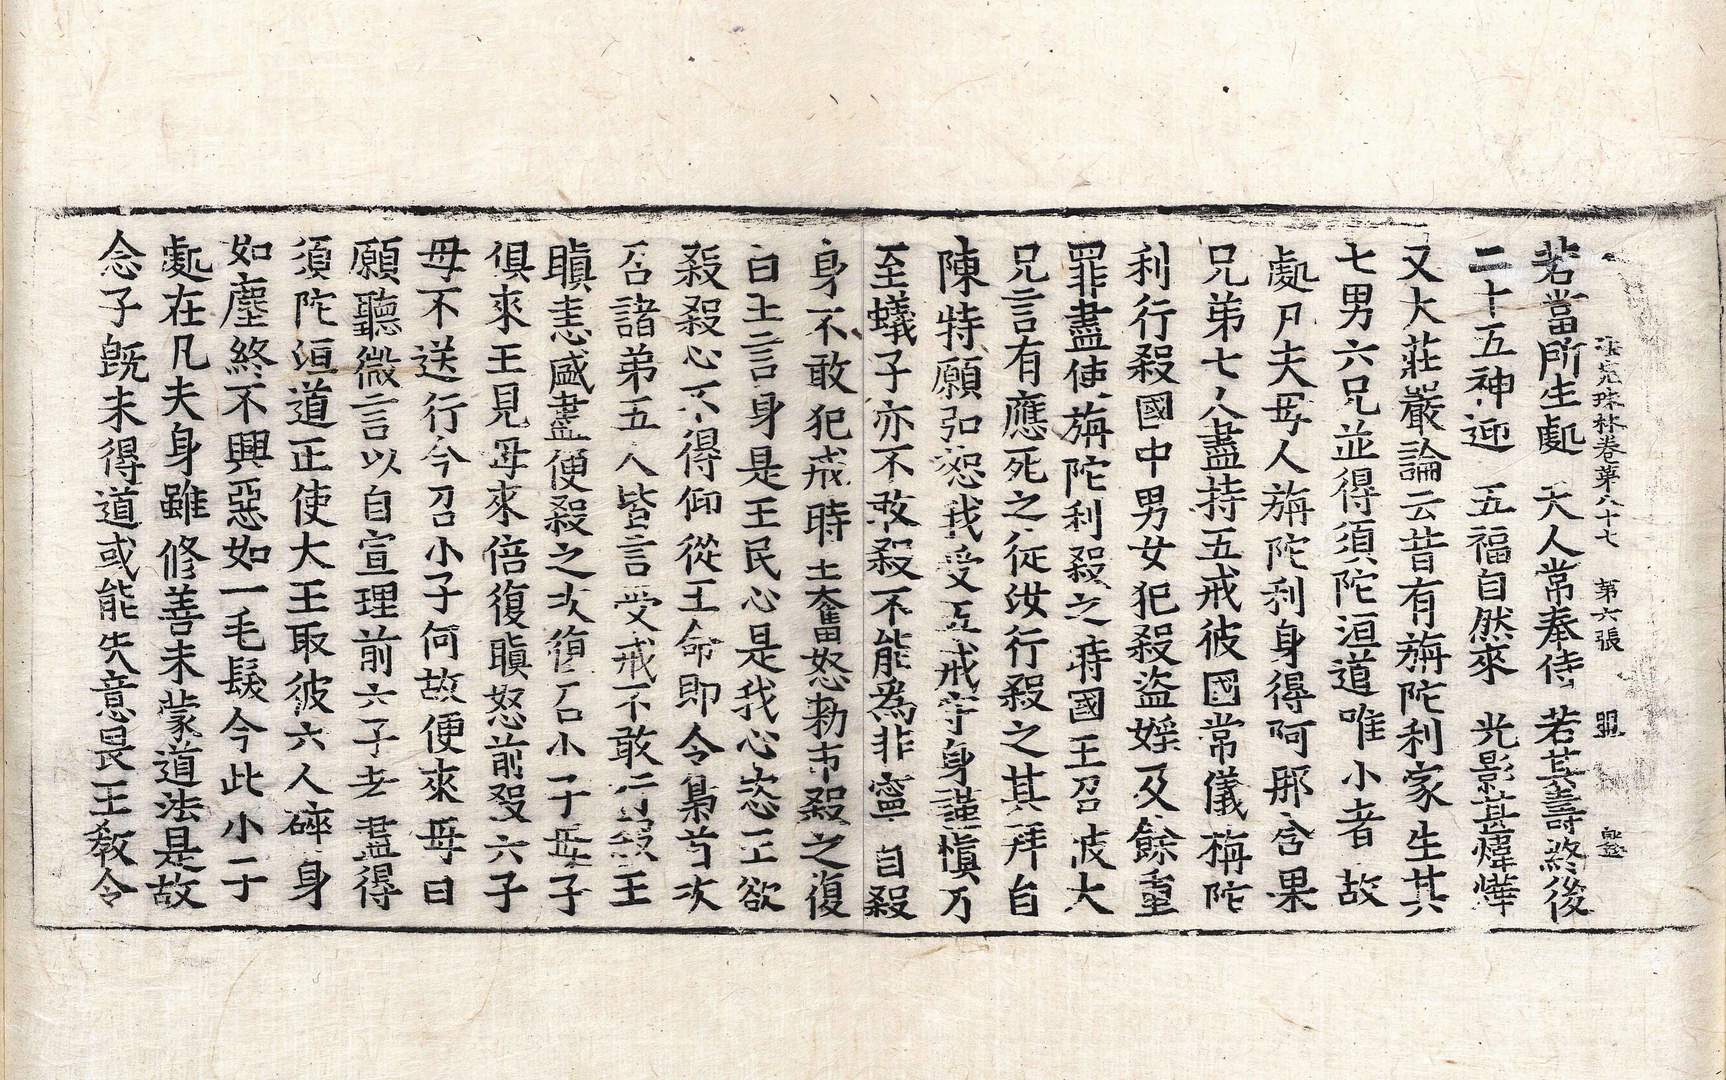 法苑珠林卷第八十七 第六張
若當所生處 天人常奉侍 若其壽終後
二十五神迎 五福自然來 光影甚煒燁
又大莊嚴論云昔有旃陀利家生其
七男六兄並得須陀洹道唯小者故
處凡夫母人旃陀利身得阿那含果
兄弟七人盡持五戒彼國常儀旃陀
利行殺國中男女犯殺盜婬及餘重
罪盡使旃陀利殺之時國王召彼大
兄言有應死之徒汝行殺之其拜自
陳特願弘恕我受五戒守身謹慎乃
至蟻子亦不敢殺不能為非寧自殺
身不敢犯戒時王奮怒勅市殺之復
白王言身是王民心是我心恣王欲
殺殺心不得仰從王命即令梟首次
召諸弟五人皆言受戒不敢行殺王
瞋恚盛盡便殺之次復召小子母子
俱來王見母來倍復瞋怒前殺六子
母不送行今召小子何故便來母曰
願聽微言以自宣理前六子者盡得
須陀洹道正使大王取彼六人碎身
如塵終不興惡如一毛髮今此小子
處在凡夫身雖修善未蒙道法是故
念子既未得道或能失意畏王教令